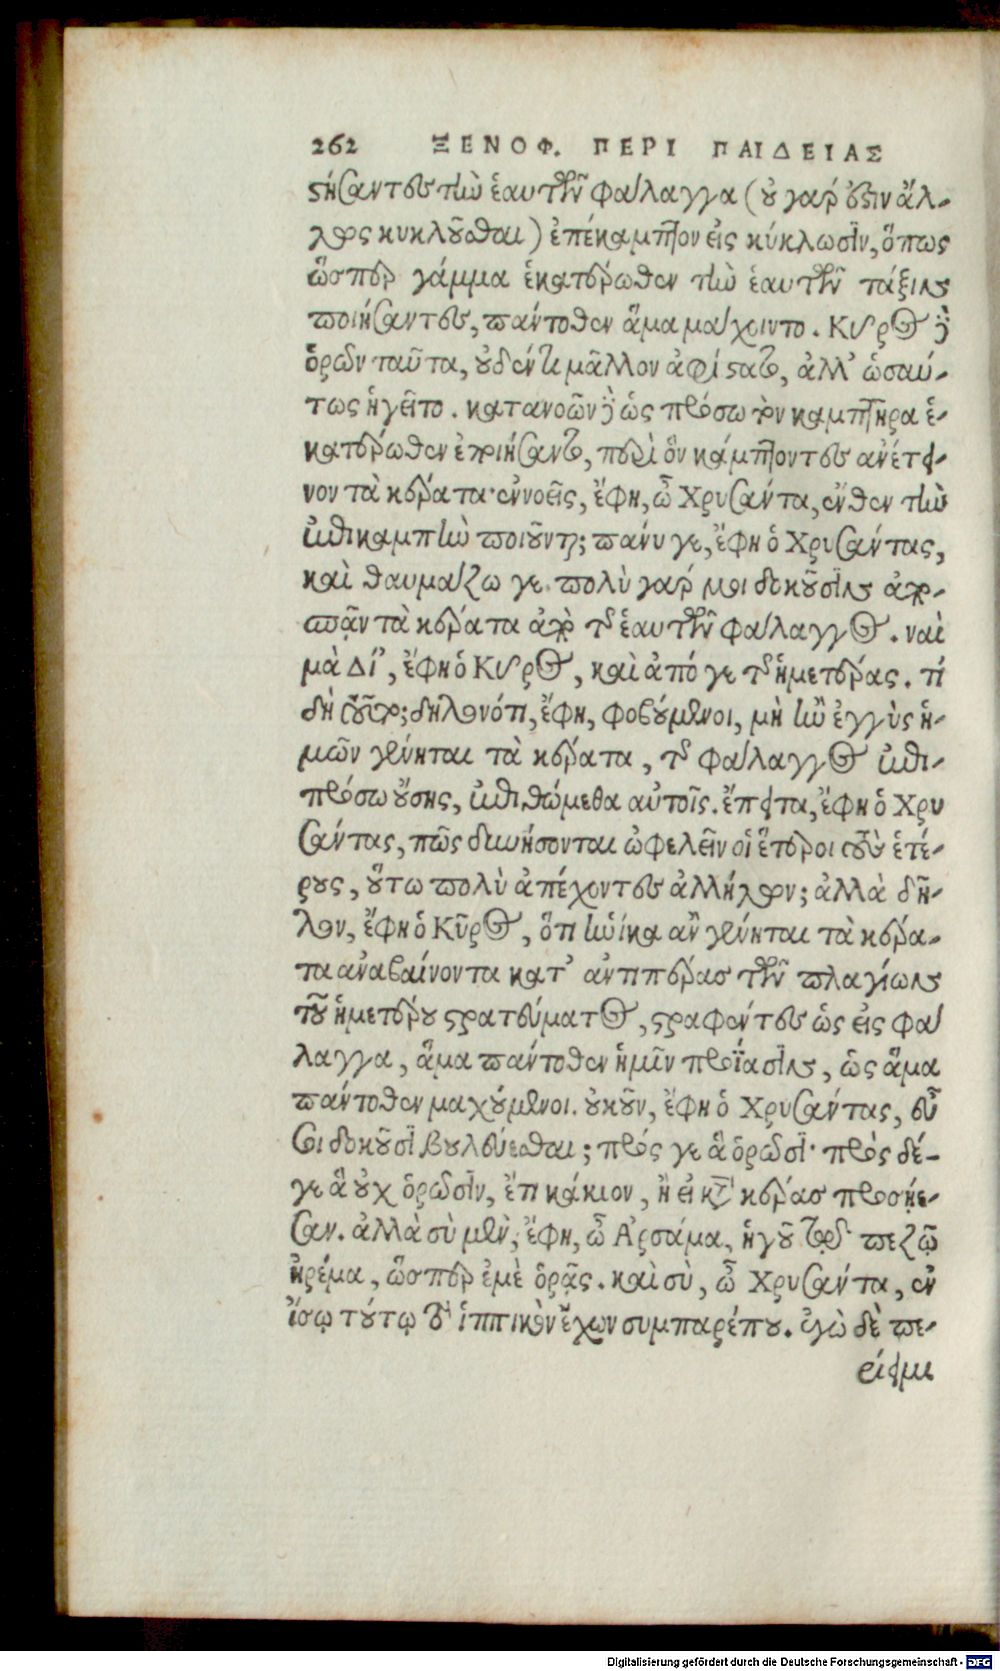 262 ΞΕΝΟΦ. ΠΕΡΙ ΠΑΙΔΕΙΑΣ
στήσαντες τὴν ἑαυτῶν φάλαγγα (οὐ γάρ ἐστιν ἄλ-
λως κυκλοῦσθαι) ἐπέκαμπτον εἰς κύκλωσιν, ὅπως
ὥσπερ γάμμα ἑκατέρωθεν τὴν ἑαυτῶν τάξιν
ποιήσαντες, πάντοθεν ἅμα μάχοιντο. Κῦρος δὲ
ὁρῶν ταῦτα, οὐδέν τι μᾶλλον ἀφίστατο, ἀλλ' ὡσαύ-
τως ἡγεῖτο. κατανοῶν δὲ ὡς πρόσω τὸν καμπτῆρα ἑ-
κατέρωθεν ἐποιήσαντο, περὶ ὃν κάμπτοντες ἀνέτει-
νον τὰ κέρατα· ἐννοεῖς, ἔφη, ὦ Χρυσάντα, ἔνθεν τὴν
ἐπικαμπὴν ποιοῦνται; πάνυ γε, ἔφη ὁ Χρυσάντας,
καὶ θαυμάζω γε. πολὺ γάρ μοι δοκοῦσιν ἀπο-
σπᾷν τὰ κέρατα ἀπὸ τῆς ἑαυτῶν φάλαγγος. ναὶ
μὰ Δί', ἔφη ὁ Κῦρος, καὶ ἀπό γε τῆς ἡμετέρας. τί
δὴ τοῦτο; δηλονότι, ἔφη, φοβούμενοι, μὴ ἢν ἐγγὺς ἡ-
μῶν γένηται τὰ κέρατα, τῆς φάλαγγος ἔτι
πρόσω οὔσης, ἐπιθώμεθα αὐτοῖς. ἔπειτα, ἔφη ὁ Χρυ
σάντας, πῶς δυνήσονται ὠφελεῖν οἱ ἕτεροι τοὺς ἑτέ-
ρους, οὕτω πολὺ ἀπέχοντες ἀλλήλων; ἀλλὰ δῆ-
λον, ἔφη ὁ Κῦρος, ὅτι ἡνίκα ἂν γένηται τὰ κέρα-
τα ἀναβαίνοντα κατ' ἀντιπέρας τῶν πλαγίων
τοῦ ἡμετέρου στρατεύματος, στραφέντες ὡς εἰς φά
λαγγα, ἅμα πάντοθεν ἡμῖν προΐασιν, ὡς ἅμα
πάντοθεν μαχούμενοι. οὐκοῦν, ἔφη ὁ Χρυσάντας, εὖ
σοι δοκοῦσι βουλεύεσθαι; πρός γε ἃ ὁρῶσι· πρὸς δέ-
γε ἃ οὐχ ὁρῶσιν, ἔτι κάκιον, ἢ εἰ κατὰ κέρας προσῄε-
σαν. ἀλλὰ σὺ μὲν, ἔφη, ὦ Ἀρσάμα, ἡγοῦ τῷ πεζῷ
ἠρέμα, ὥσπερ ἐμὲ ὁρᾷς. καὶ σὺ, ὦ Χρυσάντα, ἐν
ἴσῳ τούτῳ τὸ ἱππικὸν ἔχων συμπαρέπου. ἐγὼ δὲ ἄπ-
ειμι
Digitalisierung gefördert durch die Deutsche Forschungsgemeinschaft - DFG